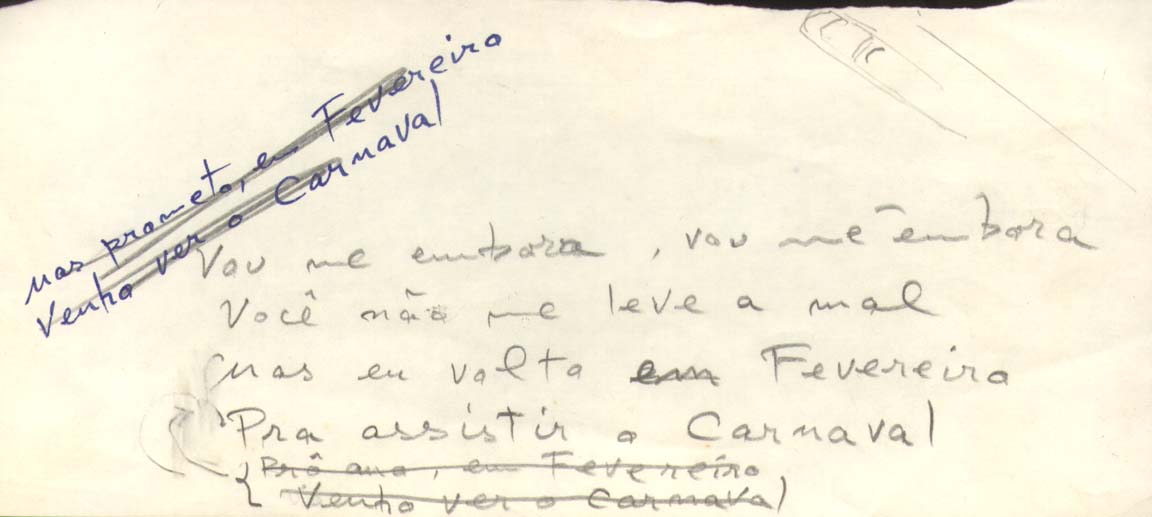 mas prometo, em Fevereiro
Venho ver o Carnaval
Vou me embora, vou me embora
Você não me leve a mal
mas eu volto em Fevereiro
Pra assistir o Carnaval
Prô ano, em Fevereiro
Venho ver o Carnaval